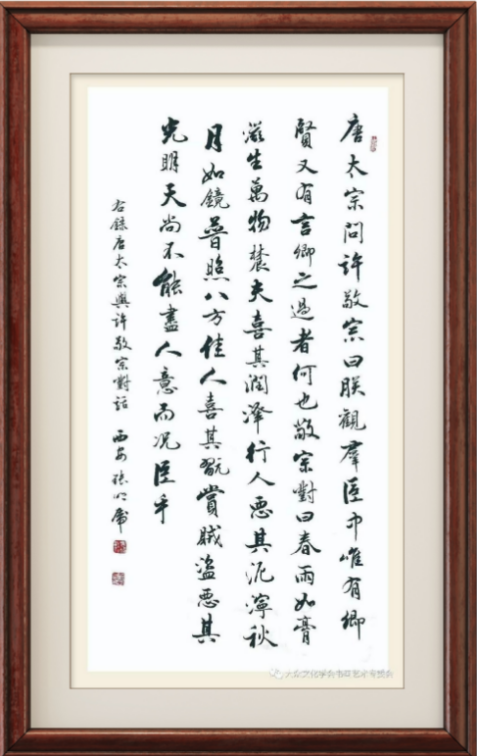 唐太宗问許敬宗曰朕觀羣臣中唯有卿
賢又有言卿之過者何也敬宗對曰春雨如膏
滋生萬物農夫喜其潤澤行人惡其泥濘秋
月如鏡普照八方佳人喜其翫賞賊盜惡其
光明天尚不能盡人意而况臣乎
右錄唐太宗與許敬宗對话 西安